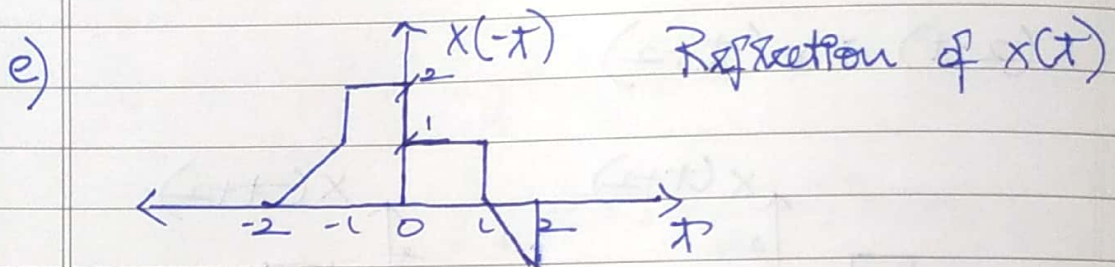 e)
x(-t)
Reflection of x(t)
2
1
-2 -1 0 1 2
t